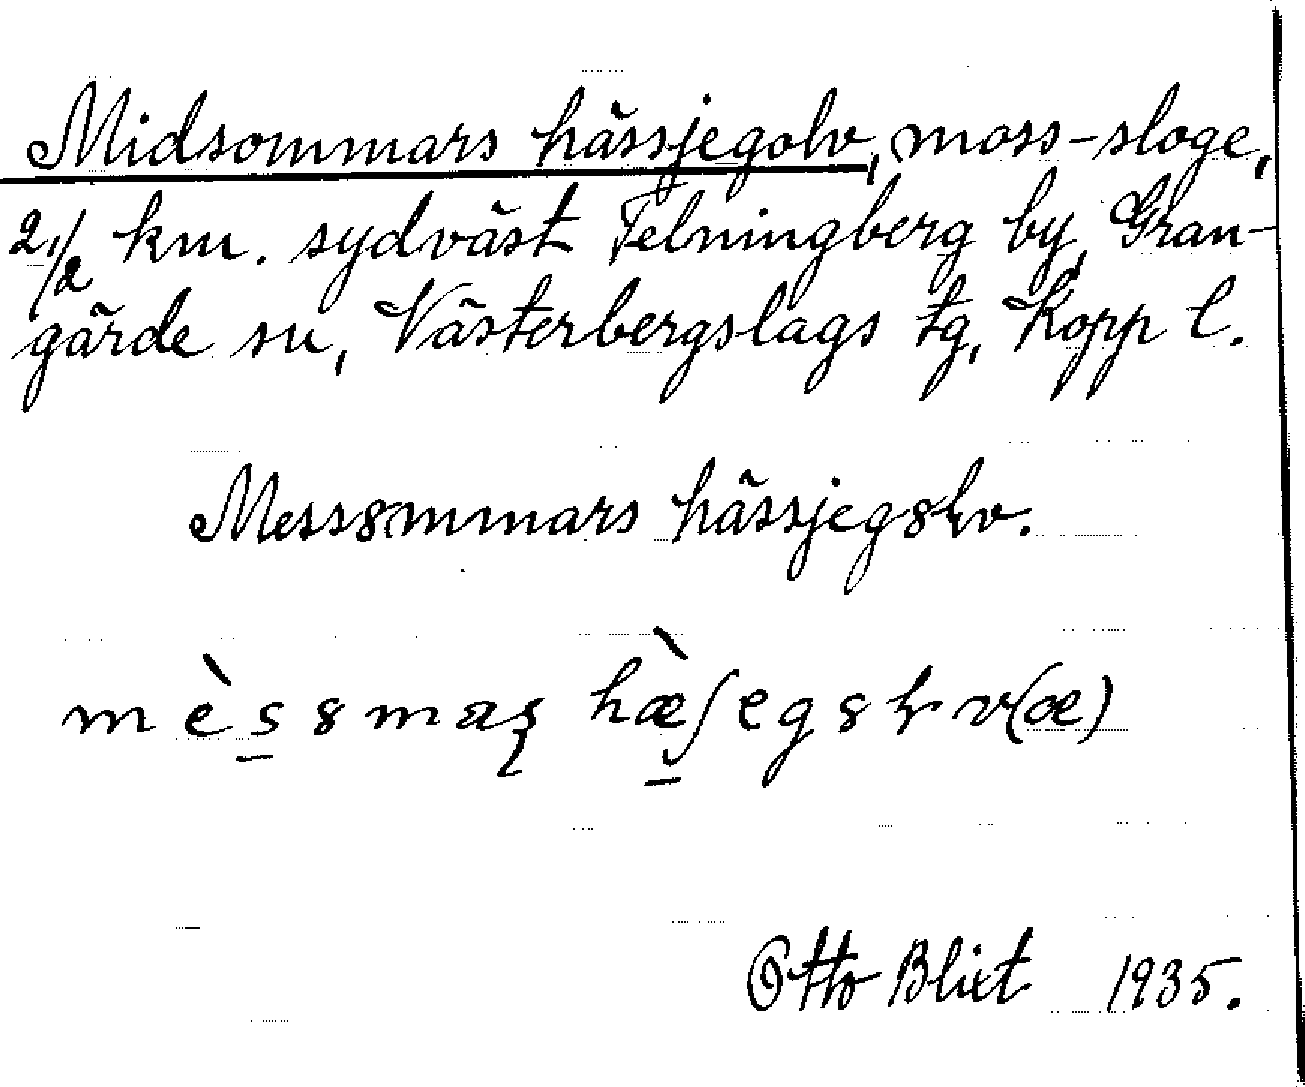 Midsommars hässjegolv, moss-sloge,
2 1/2 km. sydväst Felningberg by, Gran-
gärde sn, Västerbergslags tg, Kopp l.
Mess8mmars hässjeg8lv.
Otto Blixt 1935.